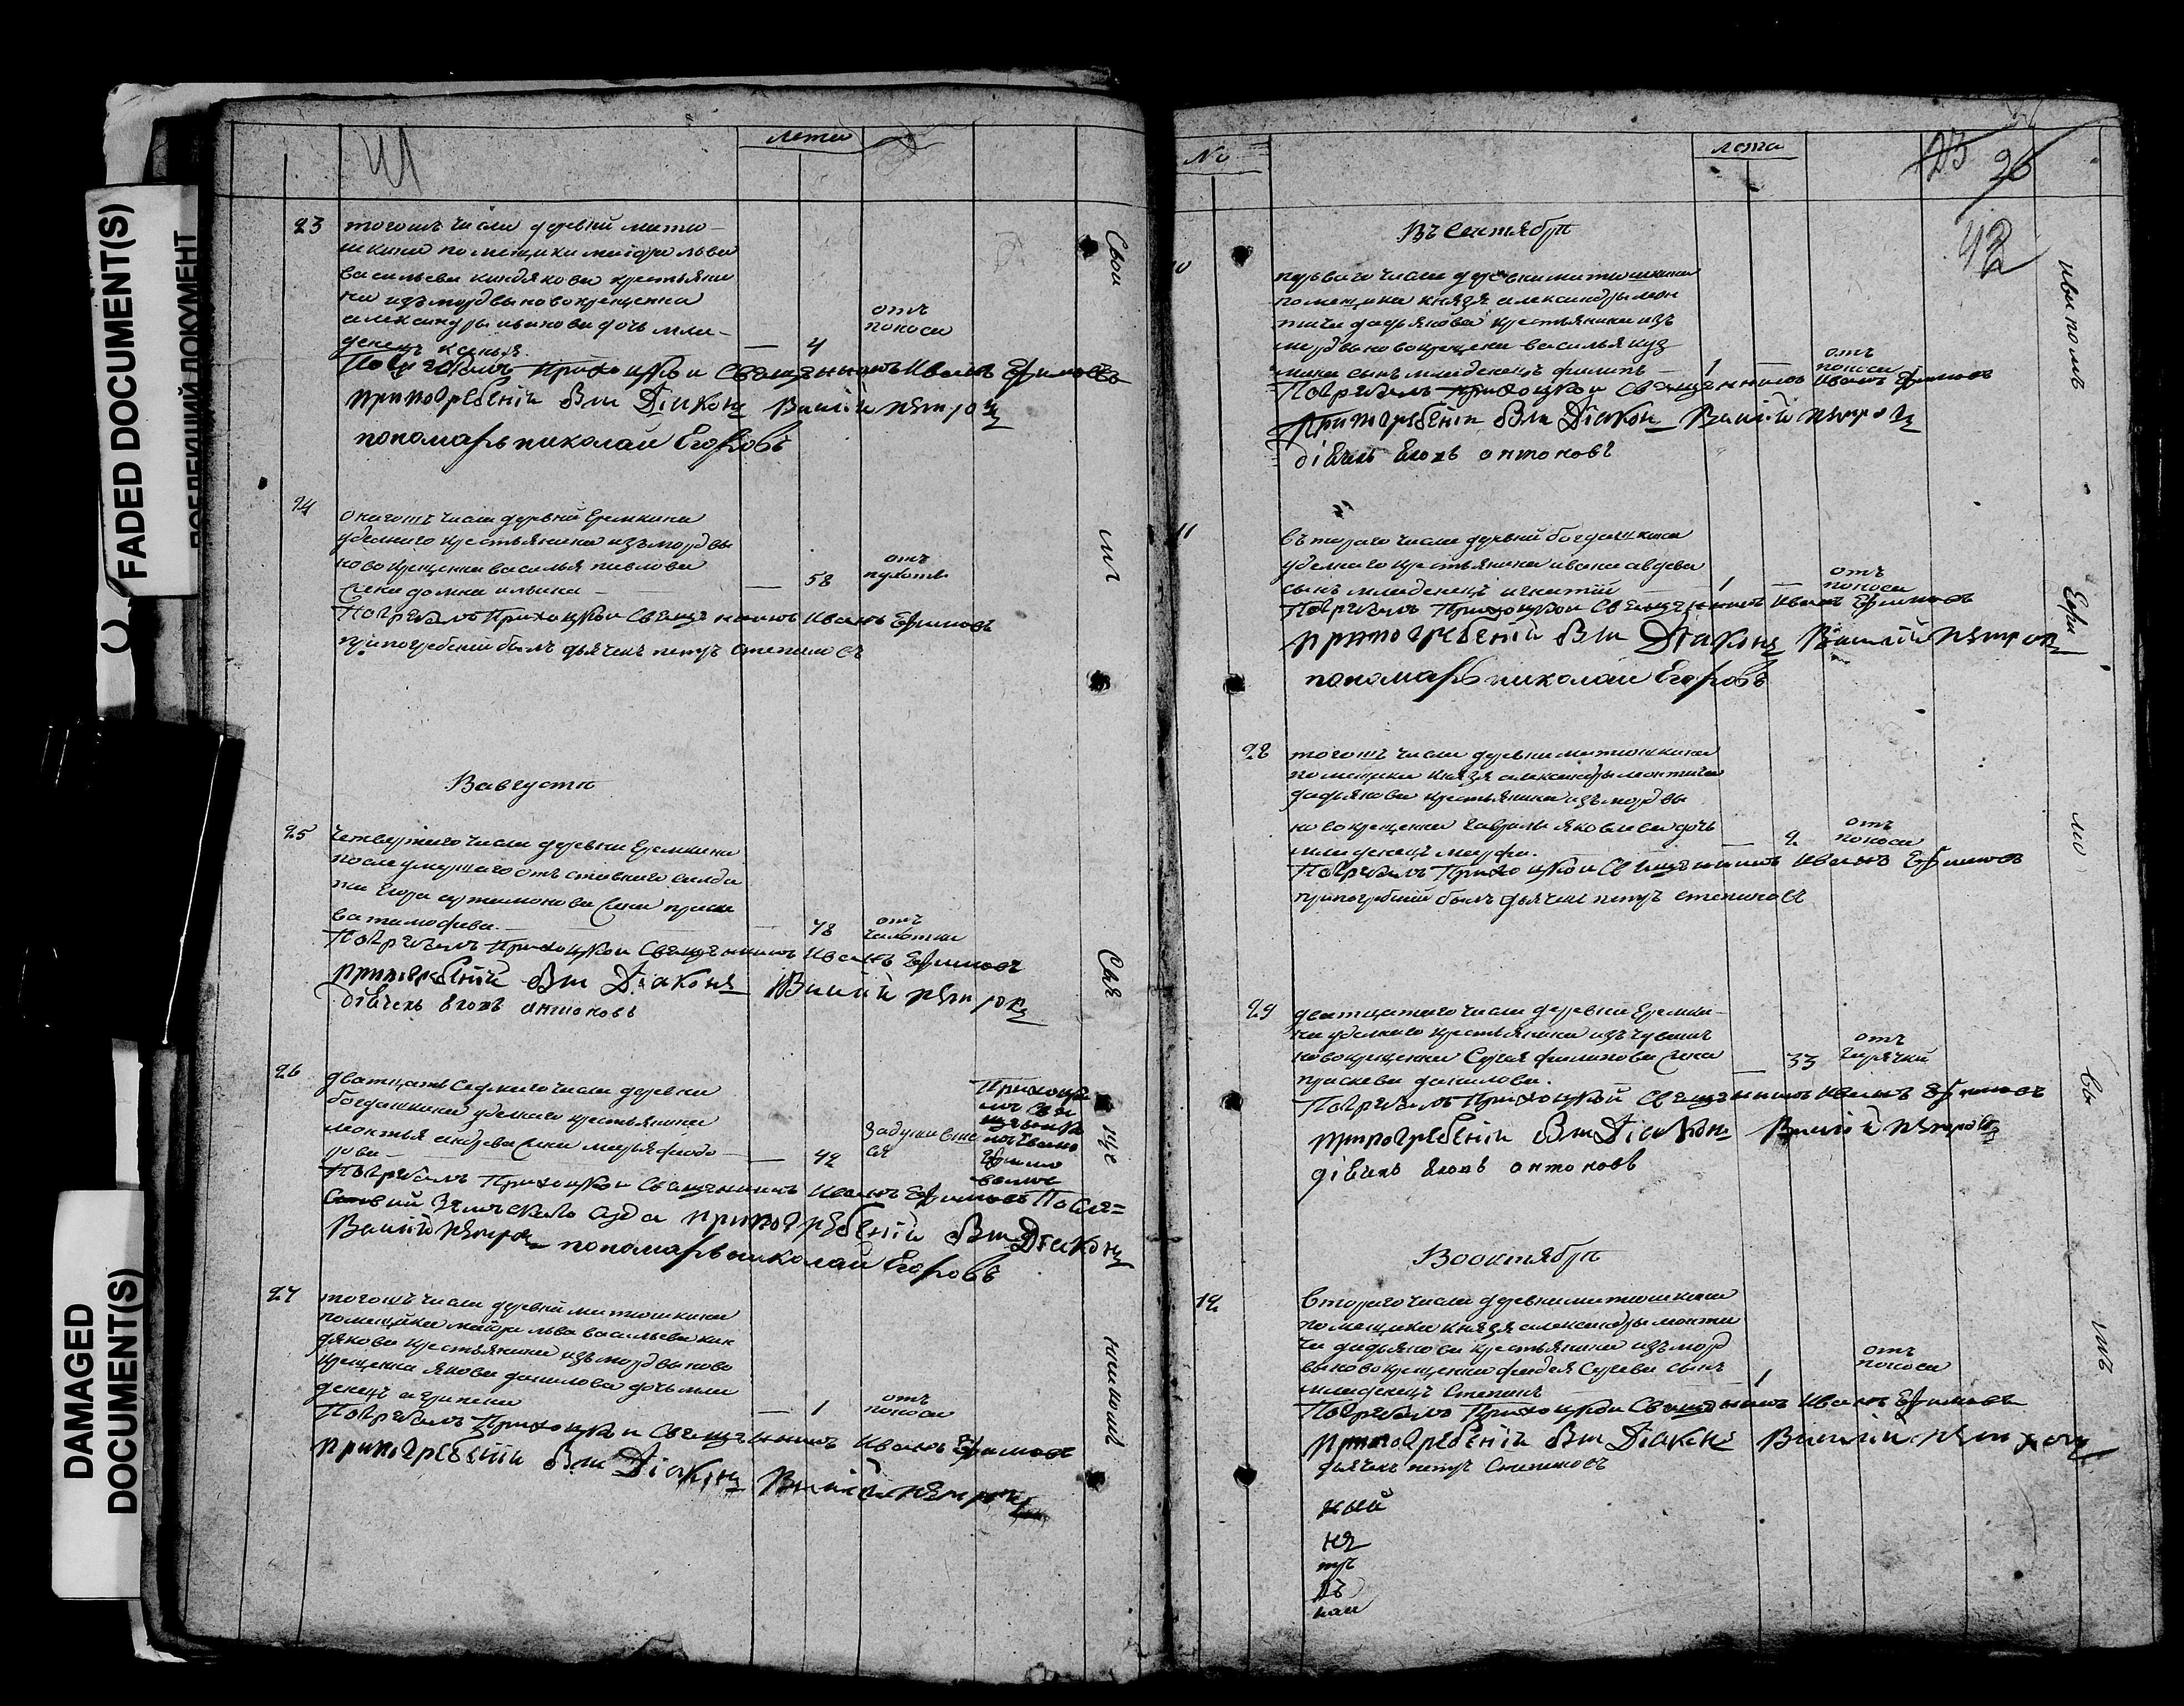 FADED DOCUMENT(S)
DAMAGED
DOCUMENT(S)
41
лета
23
тогожъ числа деревни матю-
шкина помещика маiора льва
васильева киндякова крестьяни
на изъ мордвы новокрещена
александры иванова дочь мла-
денецъ ксенья
4
отъ
поноса
Погребалъ Приходцкои Священникъ Иванъ Ефимовъ
при погребенiи былъ Дiаконъ Василiй Петровъ
пономарь николаи Егоровъ
24
онагожъ числа деревни Еремкина
уделного крестьянина изъ мордвы
новокрещена василья павлова
жена домна ильина
58
отъ
Погребалъ Приходцкои Священникъ Иванъ Ефимовъ
при погребенiи былъ дьячекъ петръ степановъ
Вавгусте
25
четвертаго числа деревни Еремкина
после умершаго отъставного салда
та Егора артамонова жена праско
ва тимофеева
78
отъ
чахотки
Погребалъ Приходцкои Священникъ Иванъ Ефимовъ
при погребенiи былъ Дiаконъ Василiй Петровъ
дiвчекъ антоновъ
26
дватцать седмаго числа деревни
богдашкина уделнаго крестьянина
леонтья андреева жена марья федо
рова
42
Погребалъ Приходцкои Священникъ Иванъ Ефимовъ
Земскаго суда при погребенiи былъ Дiаконъ
Василiй Петровъ пономарь николаи Егоровъ
27
тогожъ числа деревни матюшкина
помещика маiора льва васильева кин
дякова крестьянина изъ мордвы ново
крещена якова данилова дочь мла
денецъ аграпена
1
отъ
поноса
Погребалъ Приходцкои Священникъ Иванъ Ефимовъ
при погребенiи былъ Дiаконъ Василiй Петровъ
Сею
Свя
ще
никомъ
No
лета
23
26
42
Въ Сентябре
10
перваго числа деревни матюшкина
помещика князя александры леон
тича дадьянова крестьянина изъ
мордвы новокрещена василья куз
мина сынъ младенецъ филипъ
1
отъ
поноса
Погребалъ Приходцкои Священникъ Иванъ Ефимовъ
при погребенiи былъ Дiаконъ Василiй Петровъ
дiвчекъ антоновъ
11
въторого числа деревни богдашкина
уделнаго крестьянина ивана авдеева
сынъ младенецъ игнатiй
1
отъ
поноса
Погребалъ Приходцкои Священникъ Иванъ Ефимовъ
при погребенiй былъ Дiаконъ Василiй Петровъ
пономарь николаи Егоровъ
28
тогожъ числа деревни матюшкина
помещика князя александры леонтича
дадьянова крестьянина изъ мордвы
новокрещена гаврилы яковлева дочь
младенецъ марфа
2
отъ
поноса
Погребалъ Приходцкои Священникъ Иванъ Ефимовъ
при погребенiи былъ дьячекъ петръ степановъ
29
дватцатого числа деревни Еремки-
на уделнаго крестьянина изъ чувашъ
новокрещена Сергея филипова жена
праскева данилова
33
отъ
горячки
Погребалъ Приходцкой Священникъ Иванъ Ефимовъ
при погребенiи былъ Дiаконъ Василiй Петровъ
дiвчекъ антоновъ
Вооктябре
12
второго числа деревни матюшкина
помещика князя александры леонти
ча дадьянова крестьянина изъ морд
вы новокрещена фадея Сергева сынъ
младенецъ Степанъ
1
отъ
поноса
Погребалъ Приходцкои Священникъ Иванъ Ефимовъ
при погребенiи былъ Дiаконъ Василiй Петровъ
дьячекъ петръ Степановъ
Иваномъ
Ефи
мо
вы
мъ